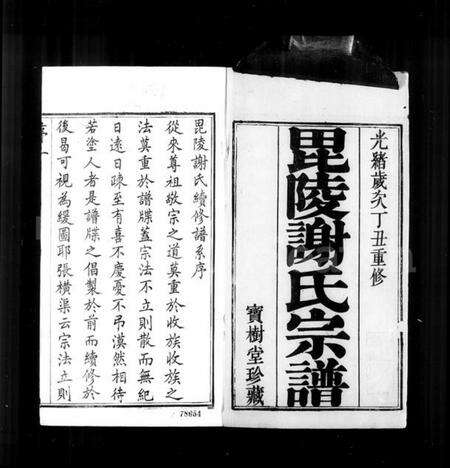 光緒歲次丁丑重修
毘陵謝氏宗譜
寶樹堂珍藏
毘陵謝氏續修譜系序
從來尊祖敬宗之道莫重於收族收族之
法莫重於譜牒蓋宗法不立則散而無紀
日遠日疎至有喜不慶憂不吊漠然相待
若塗人者是譜牒之倡製於前而續修於
後易可視為緩圖耶張橫渠云宗法立則
78654